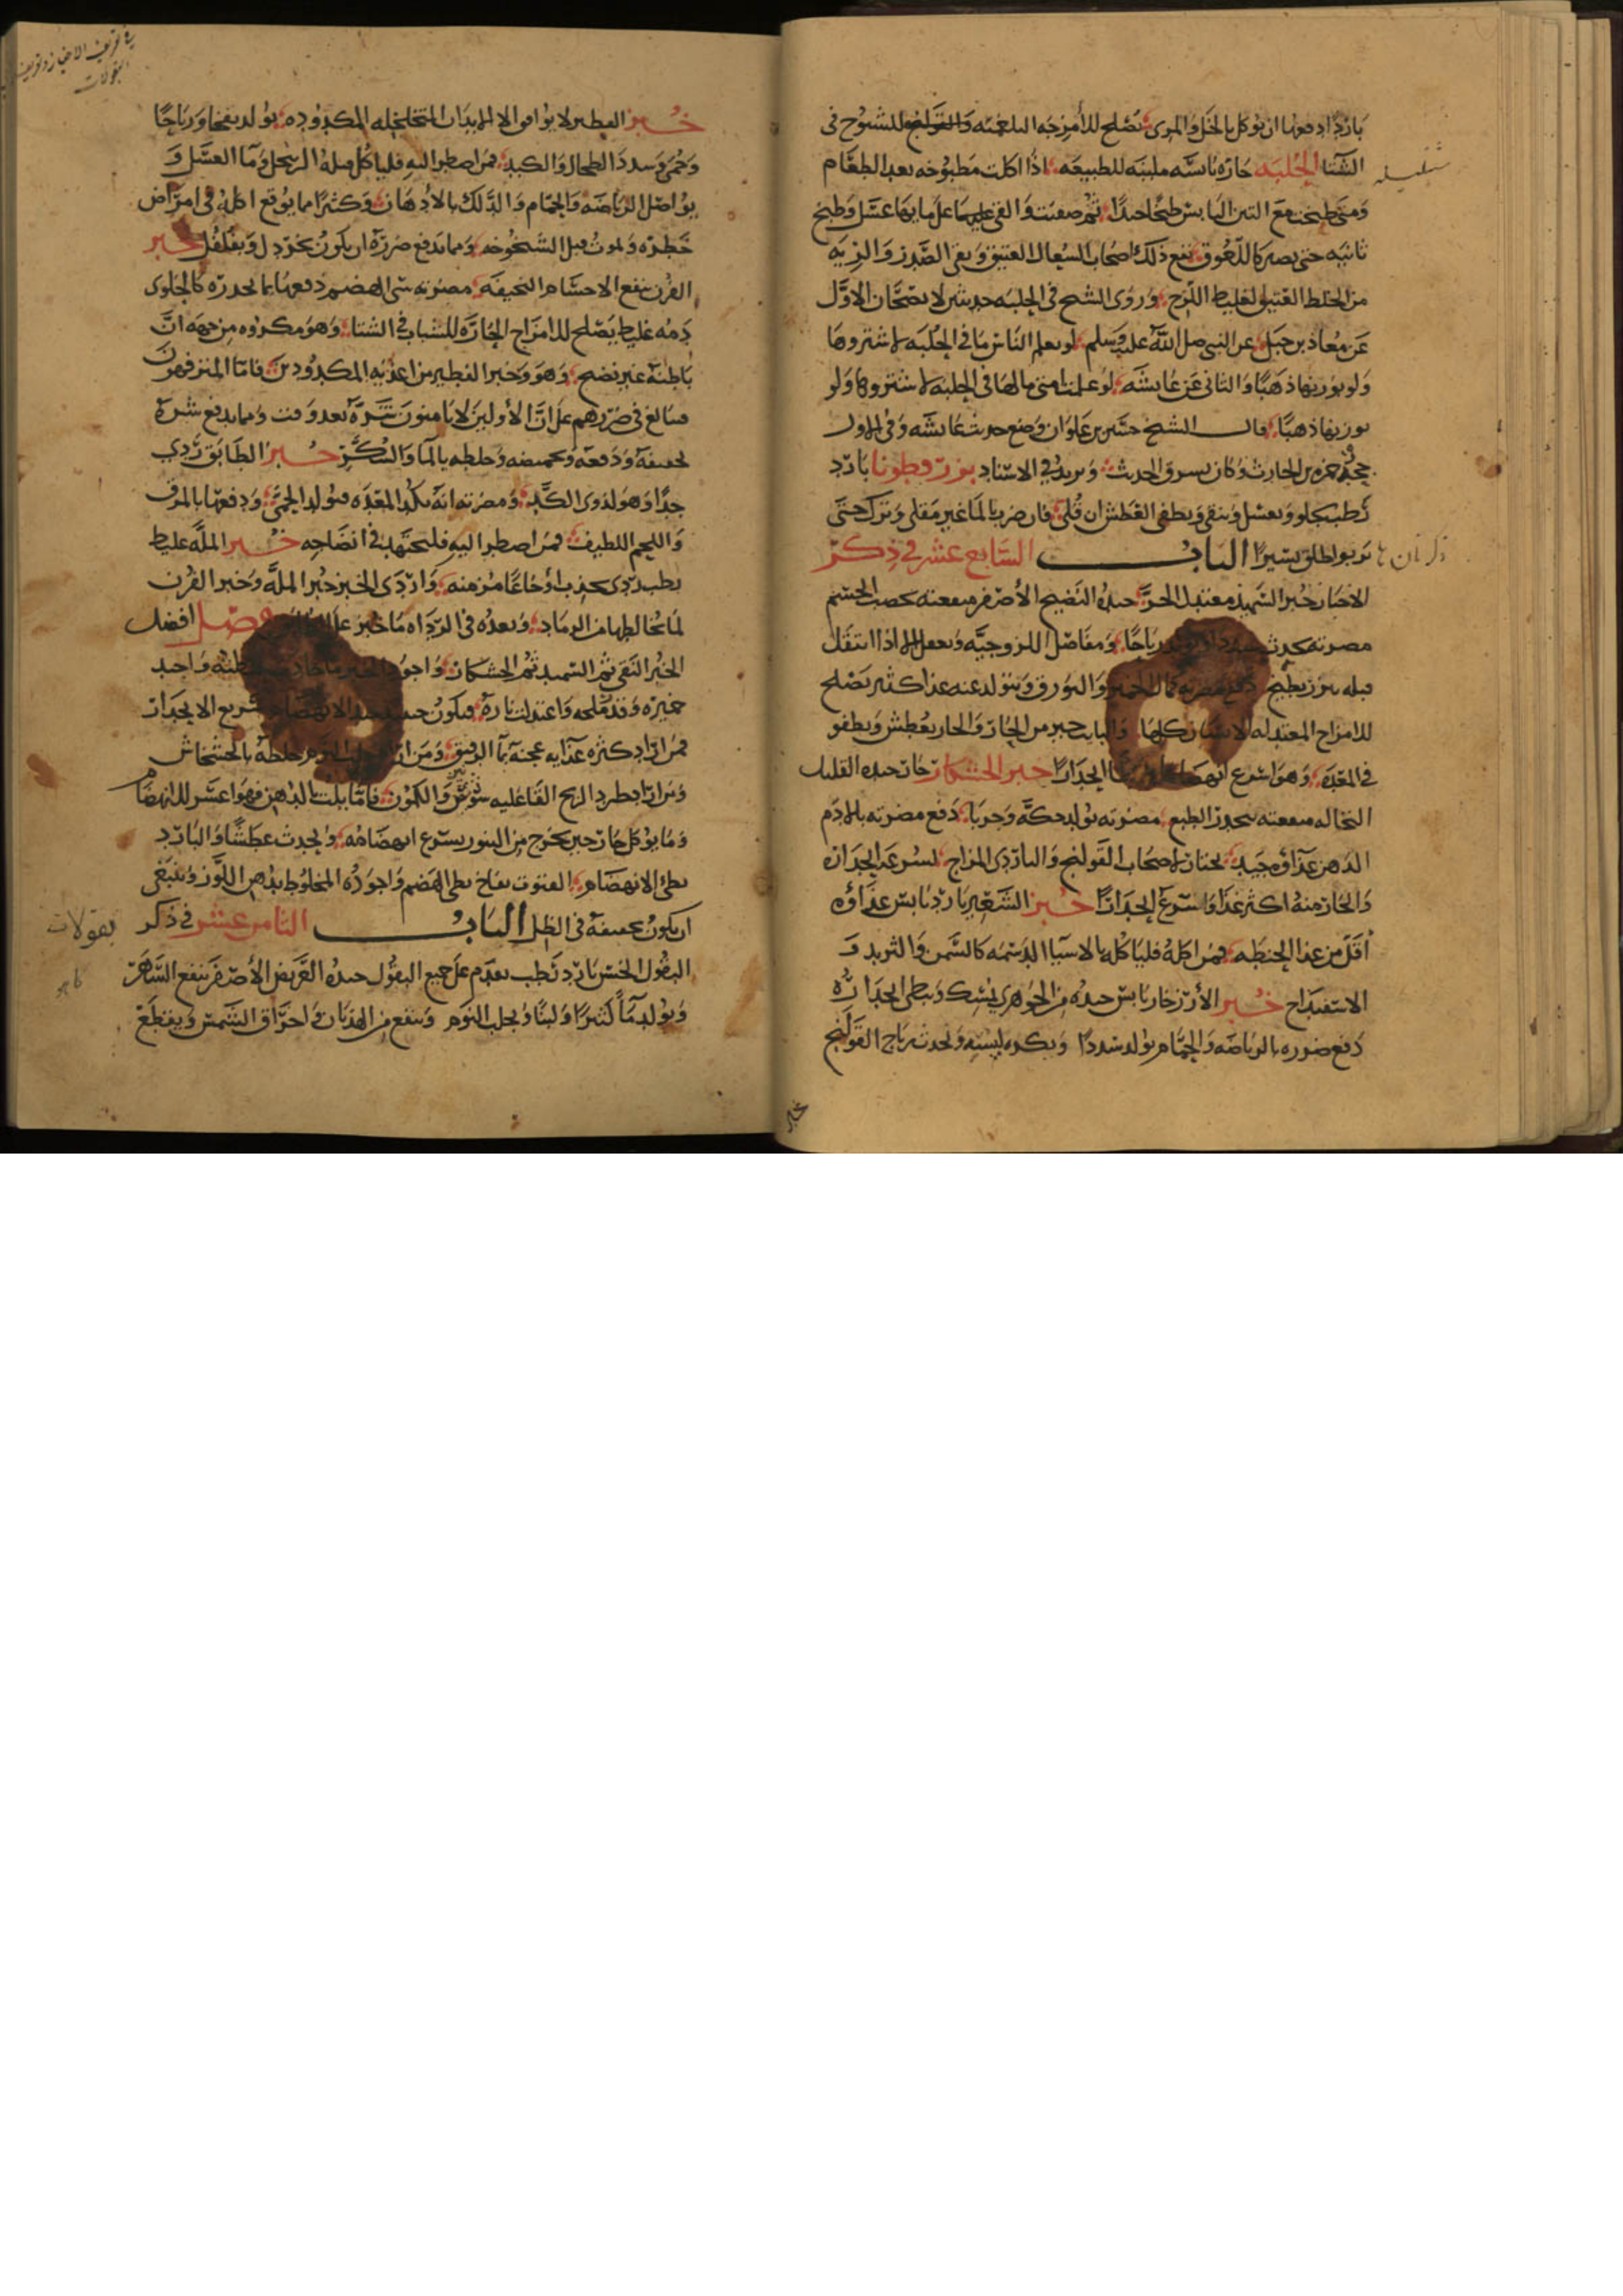 باردا دفعها ان توكل بالخل والمرى تصلح للأمزجه البلغميه للشيوخ فى
الشتا الحُلبَه حارّه يابسَه ملينه للطبيعه اذا اكلت مطبوخه بعد الطعام
ومتى طبخت مع التين اليابس طبخًا جيدًا ثم صفيت والقى عليها على مايها عسَل وطبخ
ثانيه حتى يصير كاللعُوق نفع ذلك اصحاب السُعال العتيق ونقى الصَّدر والريه
من الخلط الغليظ اللزج وروى الشيخ فى الحلبَه حديثين لا يصحّان الاوّل
عَن مُعاذ بن جبَل عن النبى صلى اللّه عليه وسلم لو يعلم النَاس مَا فى الحُلبَه لاشتروها
ولو بوزنها ذهَبًا والثانى عَن عَايشَه لو علمت امتى مالها فى الحلبه لاشتروها ولو
بوزنها ذهبًا قال الشيخ حسَين بن عَلوَان وضع حديث عَايشَه وفى الاول
جحدُر بن الحارث وكان يسرق الحديث ويزيد فى الاسناد بزر قطونا بارد
رَطب يجلو ويغسل وينقى ويطفى العَطش ان قُلى فان ضرب بالما غير مَقلى وترك حتى
يربو اطلق يسيرًا البابُ السَابع عشر فى ذِكر
ذكر نان ها
الاخبَاز خُبز السَّميذ معتدل الحرّ جيدُه النَضيج الأصفر منفعته يخصب الجسم
مضرته يحدث سددا ورياحًا ومفاصل اللزوجيَّه ويجعل اذا انتقل
قبله بزر بطيخ دفع مضرته بكمال الخمير والبورق ويتولد عنه غذا كثير يَصلح
للامزاج المعتدله الاسنان كلها والبايت خير من الحَارّ والحار يعطش ويطفو
فى المعِدَه وهو اسرع انهضاما انحدَارًا خبز الخشكار حَارّ جيده القليل
النخاله منفعته يحدر الطبع مضرته يولد حكَّه وجربَا دفع مضرته بالادم
الدهن غذاوه جَيد يختار لاصحَاب القَولنج والباردى المزاج لسُرعَه انحدَاره
والحَارّ منهُ اكثر غذا واسرع انحدَارًا خُبز الشعِير بارد يَابس غذاؤه
اقل من غذا الحنطَه فمن اكلهُ فليَاكُله بالاشيَا الدَسمَه كالسَّمن والثريد و
الاسفيداج خُبز الأرز حار يَابس جيدُه من الحُوّارى يمسك ويبطى انحدَارُه
دفع ضرره بالرياضَه والحمّام يولد سُددًا ويكره ليبسه ويحدث رياح القَولنج
خبز
خُبز الفطير لا يوافق الا الابدَان المتخلخله المكدوُده يولد نفخا وريَاحًا
وحُمى وسدد الطحال والكبد فمن اضطر اليه فلياكُل قبله الزنجبيل وما العسَل و
يواصل الريَاضَه والحمَّام والدَّلك بالأدهان وكثيرًا ما يوقع اكلهُ فى امرَاض
خَطِره ولموت قبل الشَيخُوخه ومما يدفع ضررَه ان يكونُ بخردل وبفلفُل خبز
الفُرن ينفع الاجسَام النحيفَه مضرته بطى الهضم دفعها بما يحدره كالحلوى
دَمُه غليظ يَصلح للامزاج الحَارَّه للشباب فى الشتا وهو مكروُه من جهَه انَّ
بَاطنَه غير نضيج وهو وخبز الفطير من اغذيَه المكدُودين فامّا المترفهون
فبَالغ فى ضررهم على انَّ الأولين لا يامنون شرَّهُ بعد وقت ومما يدفع شرهُ
تجفيفهُ ودقهُ وتحميصه وخلطه بالمَا والسُكَّر خُبز الطَابَق رَدى
جدًا وهو لذوى الكَدّ ومضرته انَّهُ ينكد المعِدَه فيولد الحُمَّى ودفعها بالمرق
واللحم اللطيف فمن اضطر اليه فليجتهِد فى انضَاجه خُبز المَلَّه غليظ
بطىء ردى يحدث أوجَاعًا مزمنه واردَى الخبز خُبز الملَّه وخبز الفُرن
لما يخالطها من الرمَاد وبعدُه فى الردَاه ما خبز على فصل افضل
الخُبز النَقى ثم السَّميد ثم الخشكار واجودُ الخبز ما جادت حنطتُه واجيد
خميرُه وقدر مَلحه واعتدلت ناره فيكونُ جيد الانهضَام سَريع الانحدَار
فمن ارَاد كثره غذايه عجنه بما الدقيق ومَن اراد جلب النوم خلطَهُ بالخشخاش
ومن اراد طرد الريح القا عليه شونيز والكمُون فامّا بايت بالدهن فهو اعسَر للانهضَام
ومَا يوكل حَارّ حين يخرج من التنور يسرع انهضَامُه ويحدث عطشًا والبَارد
بطئ الانهضَام الفتوت نفاخ بطى الهَضم واجودُه المخلوط بدُهن اللَّوز وينبَغى
ان يكونُ تجفيفهُ فى الظل البابُ الثامن عشر فى ذكر
بقولات
البقُول الخسّ بَارد رَطب يقدَّم على جميع البقُول جيدُه العَريض الأصفر ينفع السَّهَر
كاهو
ويُولد دمًا كثيرًا ولبنًا ويجلب النَوم وينفع من الهذيَان واحترَاق الشمس ويقطع